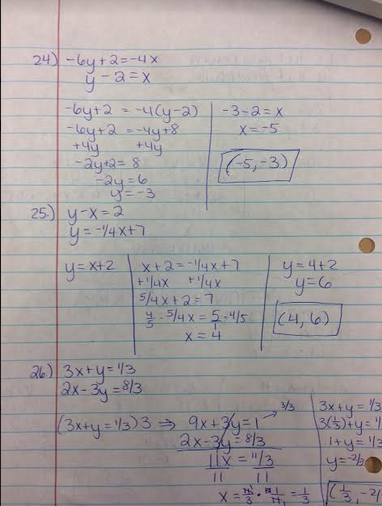 24) -6y+2=-4x
y-2=x
-6y+2 = -4(y-2)
-6y+2 = -4y+8
+4y +4y
-2y+2= 8
-2y=6
y=-3
-3-2=x
x=-5
(-5,-3)
25.) y-x=2
y=-1/4x+7
y=x+2
x+2=-1/4x+7
+1/4x +1/4x
5/4x+2=7
4/5 · 5/4x = 5 · 4/5
x=4
y=4+2
y=6
(4,6)
26.) 3x+y=1/3
2x-3y=8/3
(3x+y=1/3)3 ⇒ 9x+3y=1 → 3/3
2x-3y=8/3
11x = 11/3
11 11
x = 11/3 · 1/11 = 1/3
3x+y=1/3
3(1/3)+y=1/
1+y=1/3
y=-2/3
(1/3,-2/